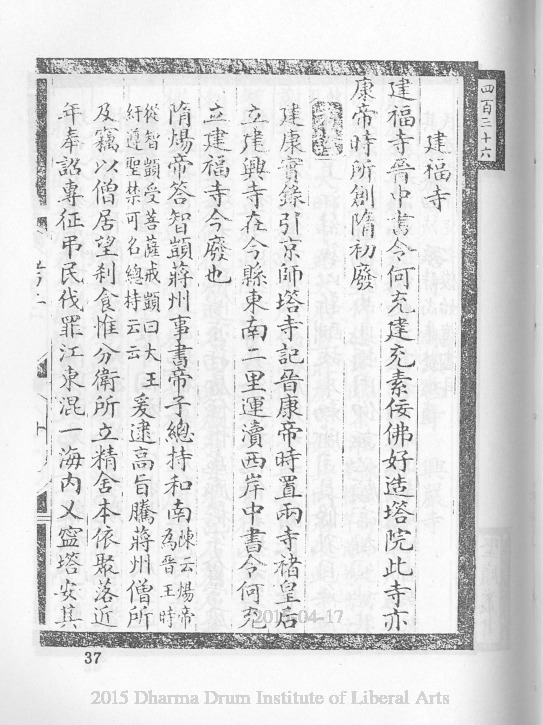 四百三十六
建福寺
建福寺晉中書令何充建充素佞佛好造塔院此寺亦
康帝時所創隋初廢
建康實錄引京師塔寺記晉康帝時置兩寺褚皇后
立建興寺在今縣東南二里運瀆西岸中書令何充
立建福寺今廢也
隋煬帝答智顗蔣州事書帝子總持和南陳云煬帝為晉王時
從智顗受菩薩戒顗曰大王紆遵聖禁可名總持云云爰逮高旨騰蔣州僧所
及竊以僧居望剎食惟分衛所立精舍本依聚落近
年奉詔專征弔民伐罪江東混一海內乂寧塔安其
37
2015-04-17
2015 Dharma Drum Institute of Liberal Arts